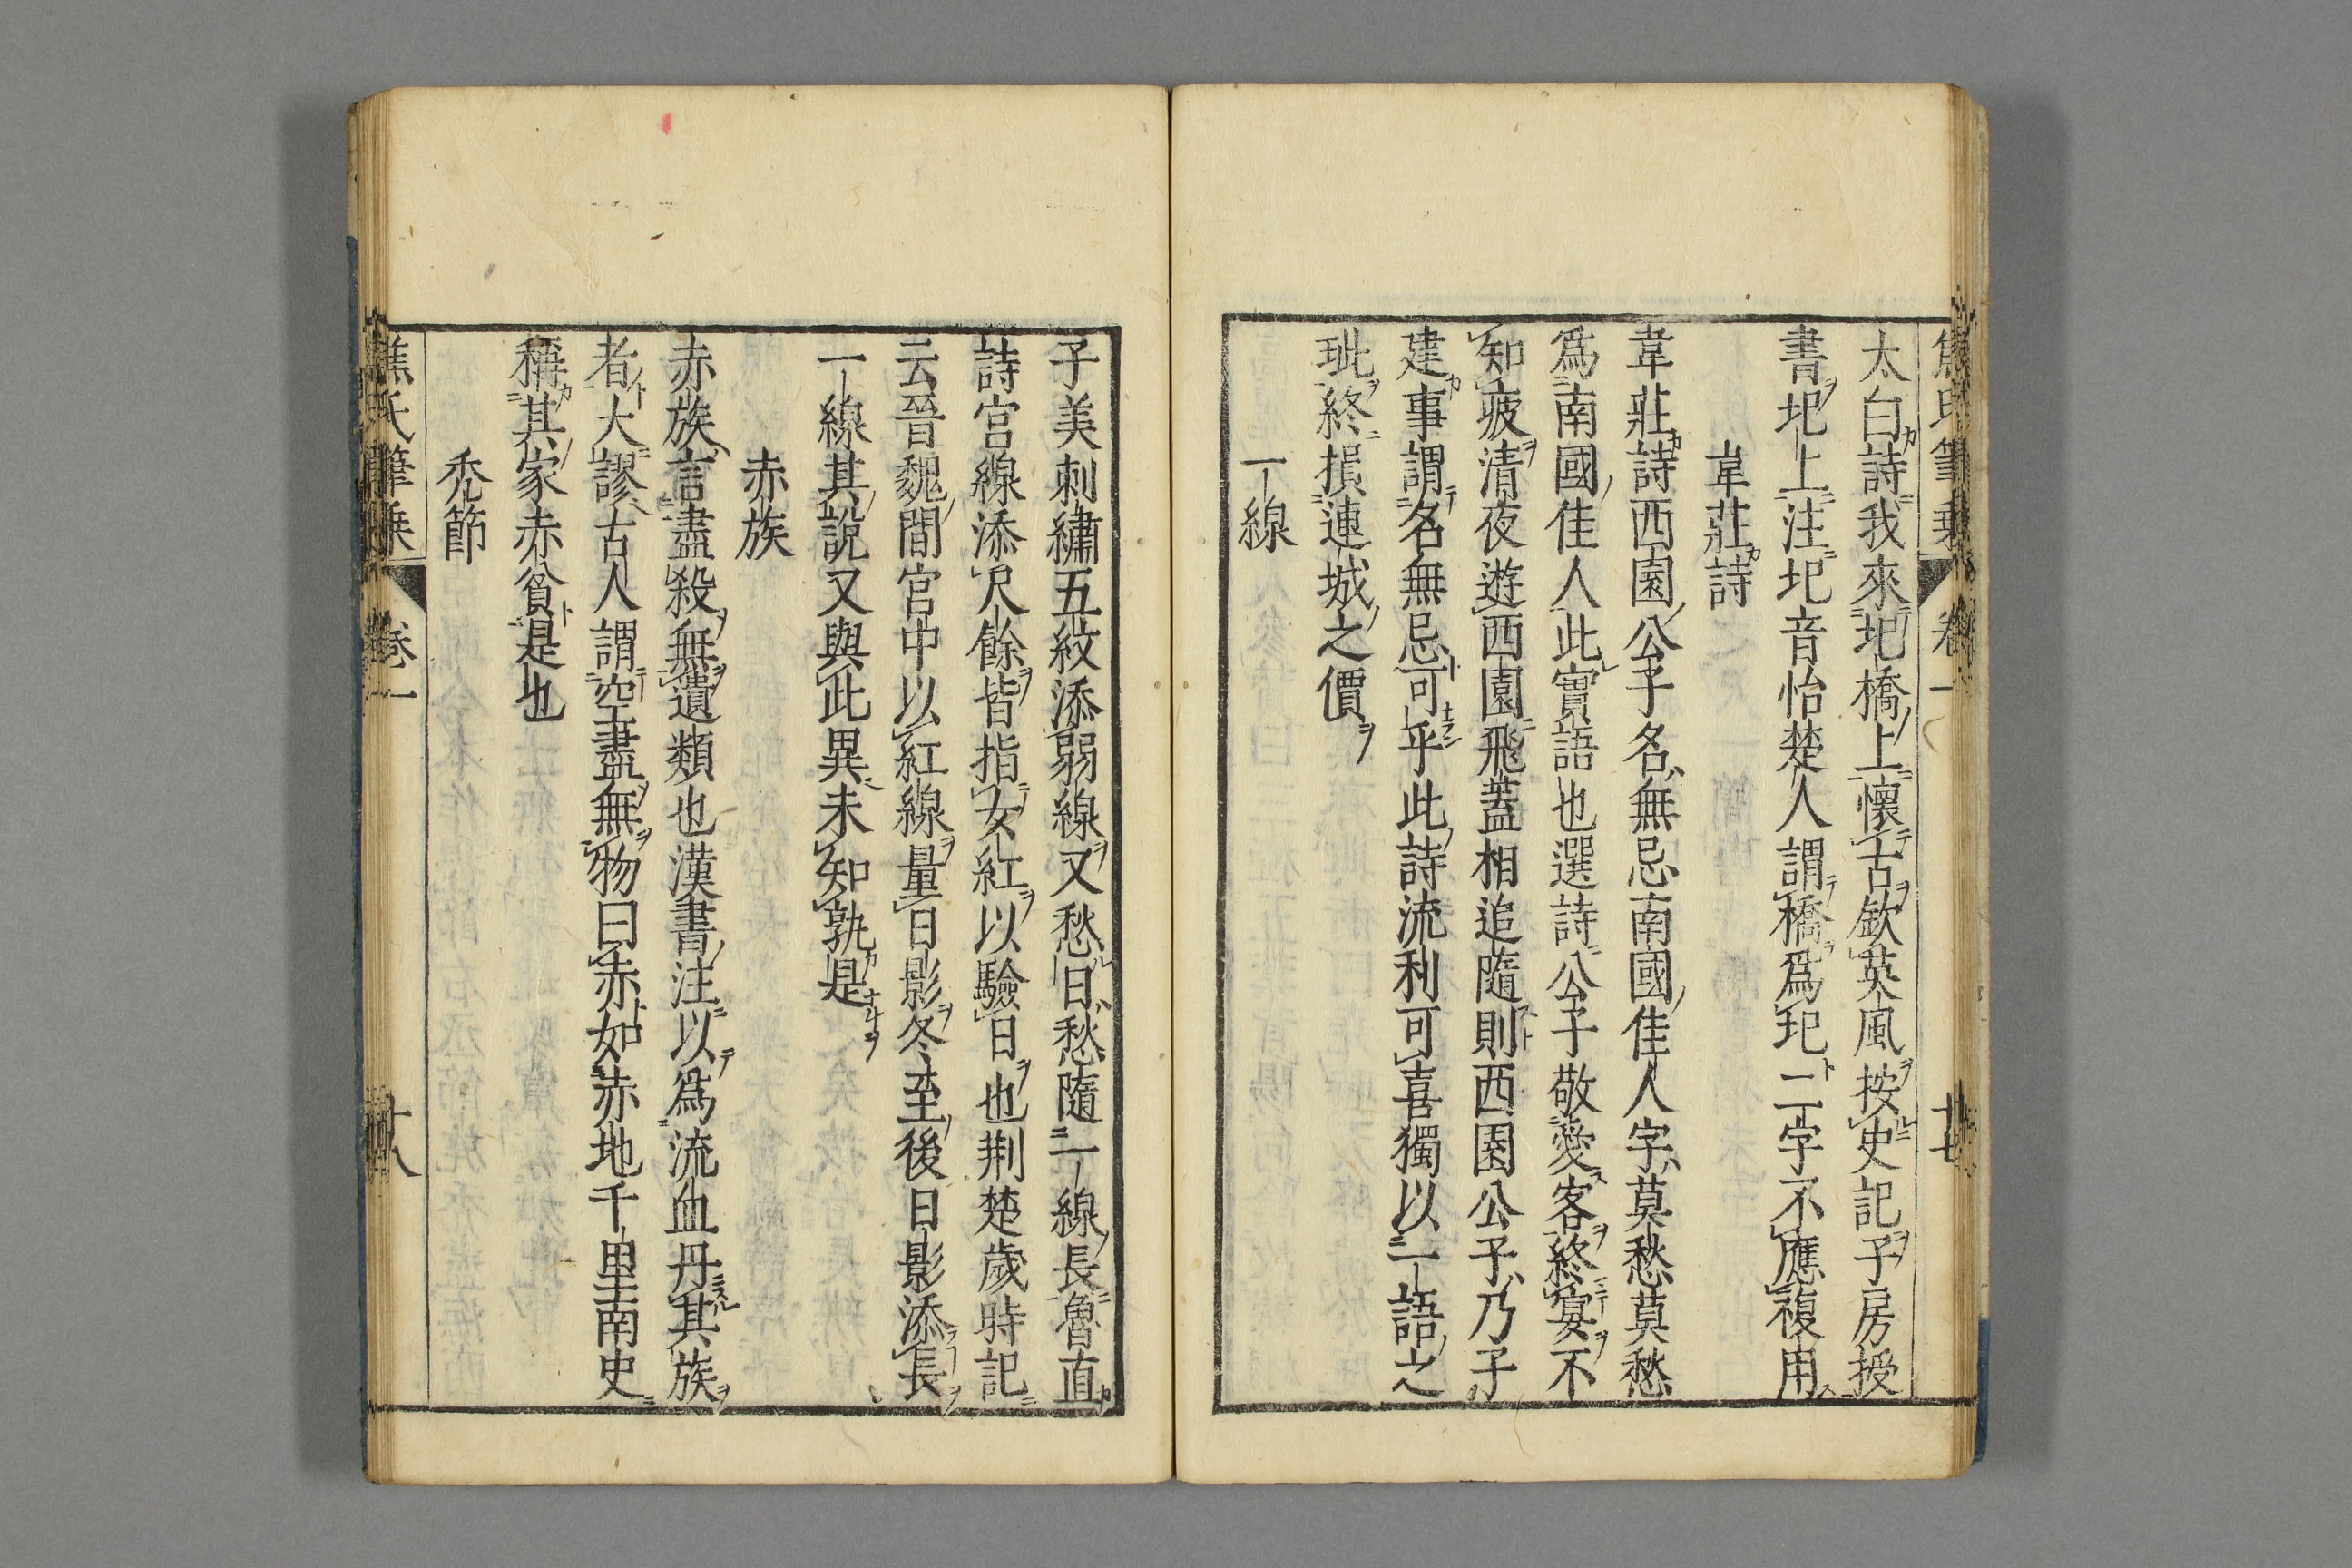 焦氏筆乗 卷一 廿七
太白詩我來圯橋上懷古欽英風按史記子房授
書圯上注圯音怡楚人謂橋爲圯二字不應複用
韋莊詩
韋莊詩西園公子名無忌南國佳人字莫愁莫愁
爲南國佳人此實語也選詩公子敬愛客終宴不
知疲清夜遊西園飛蓋相追隨則西園公子乃子
建事謂名無忌可乎此詩流利可喜獨以一語之
玼終損連城之價
一線
子美刺繡五紋添弱線又愁日愁隨一線長魯直
詩宮線添尺餘皆指女紅以驗日也荆楚歲時記
云晉魏間宮中以紅線量日影冬至後日影添長
一線其說又與此異未知孰是
赤族
赤族言盡殺無遺類也漢書注以爲流血丹其族
者大謬古人謂空盡無物曰赤如赤地千里南史
稱其家赤貧是也
禿節
焦氏筆乗 卷一 廿八